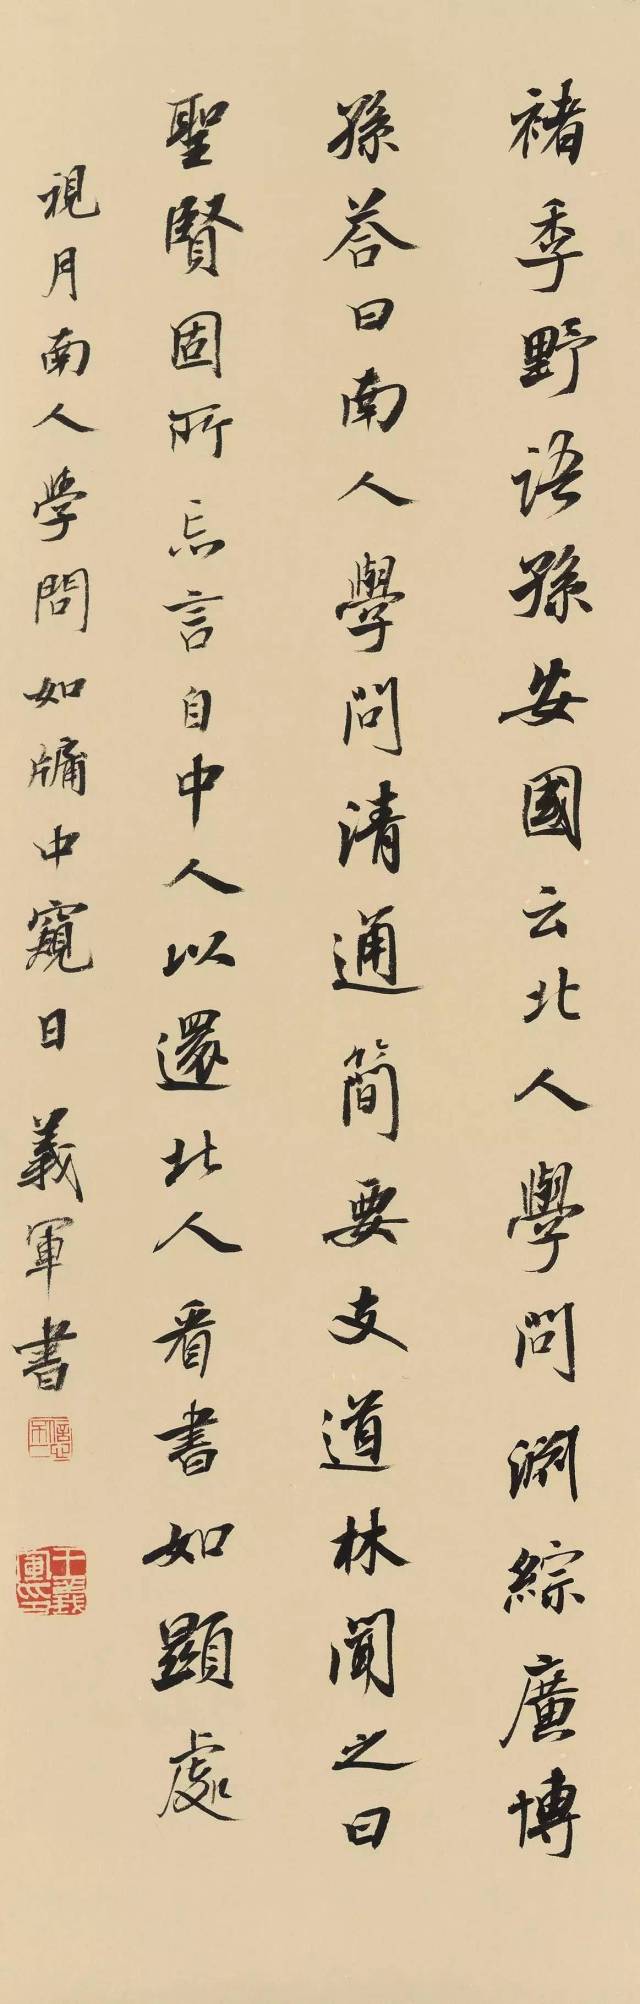 褚季野語孫安國云北人學問淵綜廣博
孫荅曰南人學問清通簡要支道林聞之曰
聖賢固所忘言自中人以還北人看書如顯處
視月南人學問如牖中窺日 義軍書
王義軍印